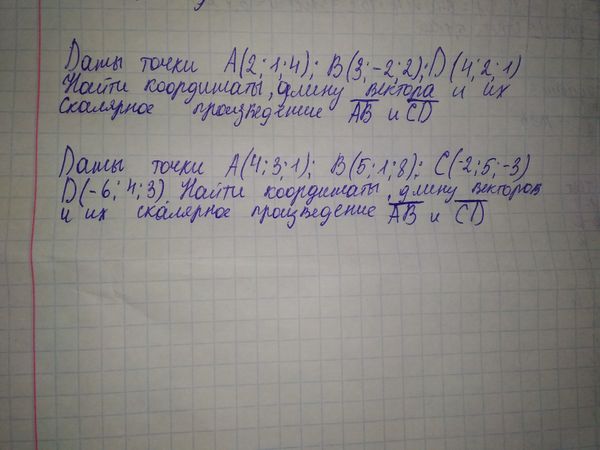 Даны точки A(2;1;4); B(3;-2;2); D(4;2;1)
Найти координаты, длину вектора и их
скалярное произведение AB и CD
Даны точки A(4;3;1); B(5;1;8); C(-2;5;-3)
D(-6;4;3). Найти координаты, длину векторов
и их скалярное произведение AB и CD